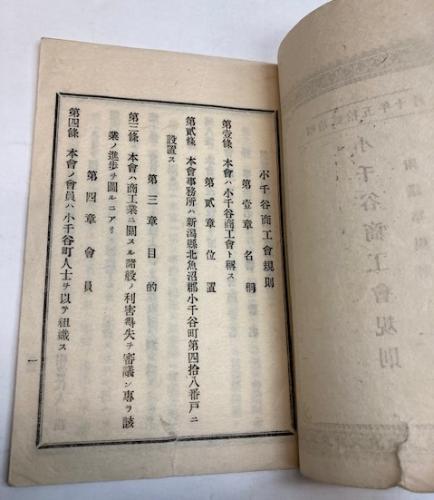 小千谷商工會規則
第壹章 名稱
第壹條 本會ハ小千谷商工會ト稱ス
第貳章 位置
第貳條 本會事務所ハ新潟縣北魚沼郡小千谷町第四拾八番戸ニ
設置ス
第三章 目的
第三條 本會ハ商工業ニ關スル諸般ノ利害得失ヲ審議シ專ラ該
業ノ進歩ヲ圖ルニアリ
第四章 會員
第四條 本會ノ會員ハ小千谷町人士ヲ以テ組織ス
一
小千谷商工會規則